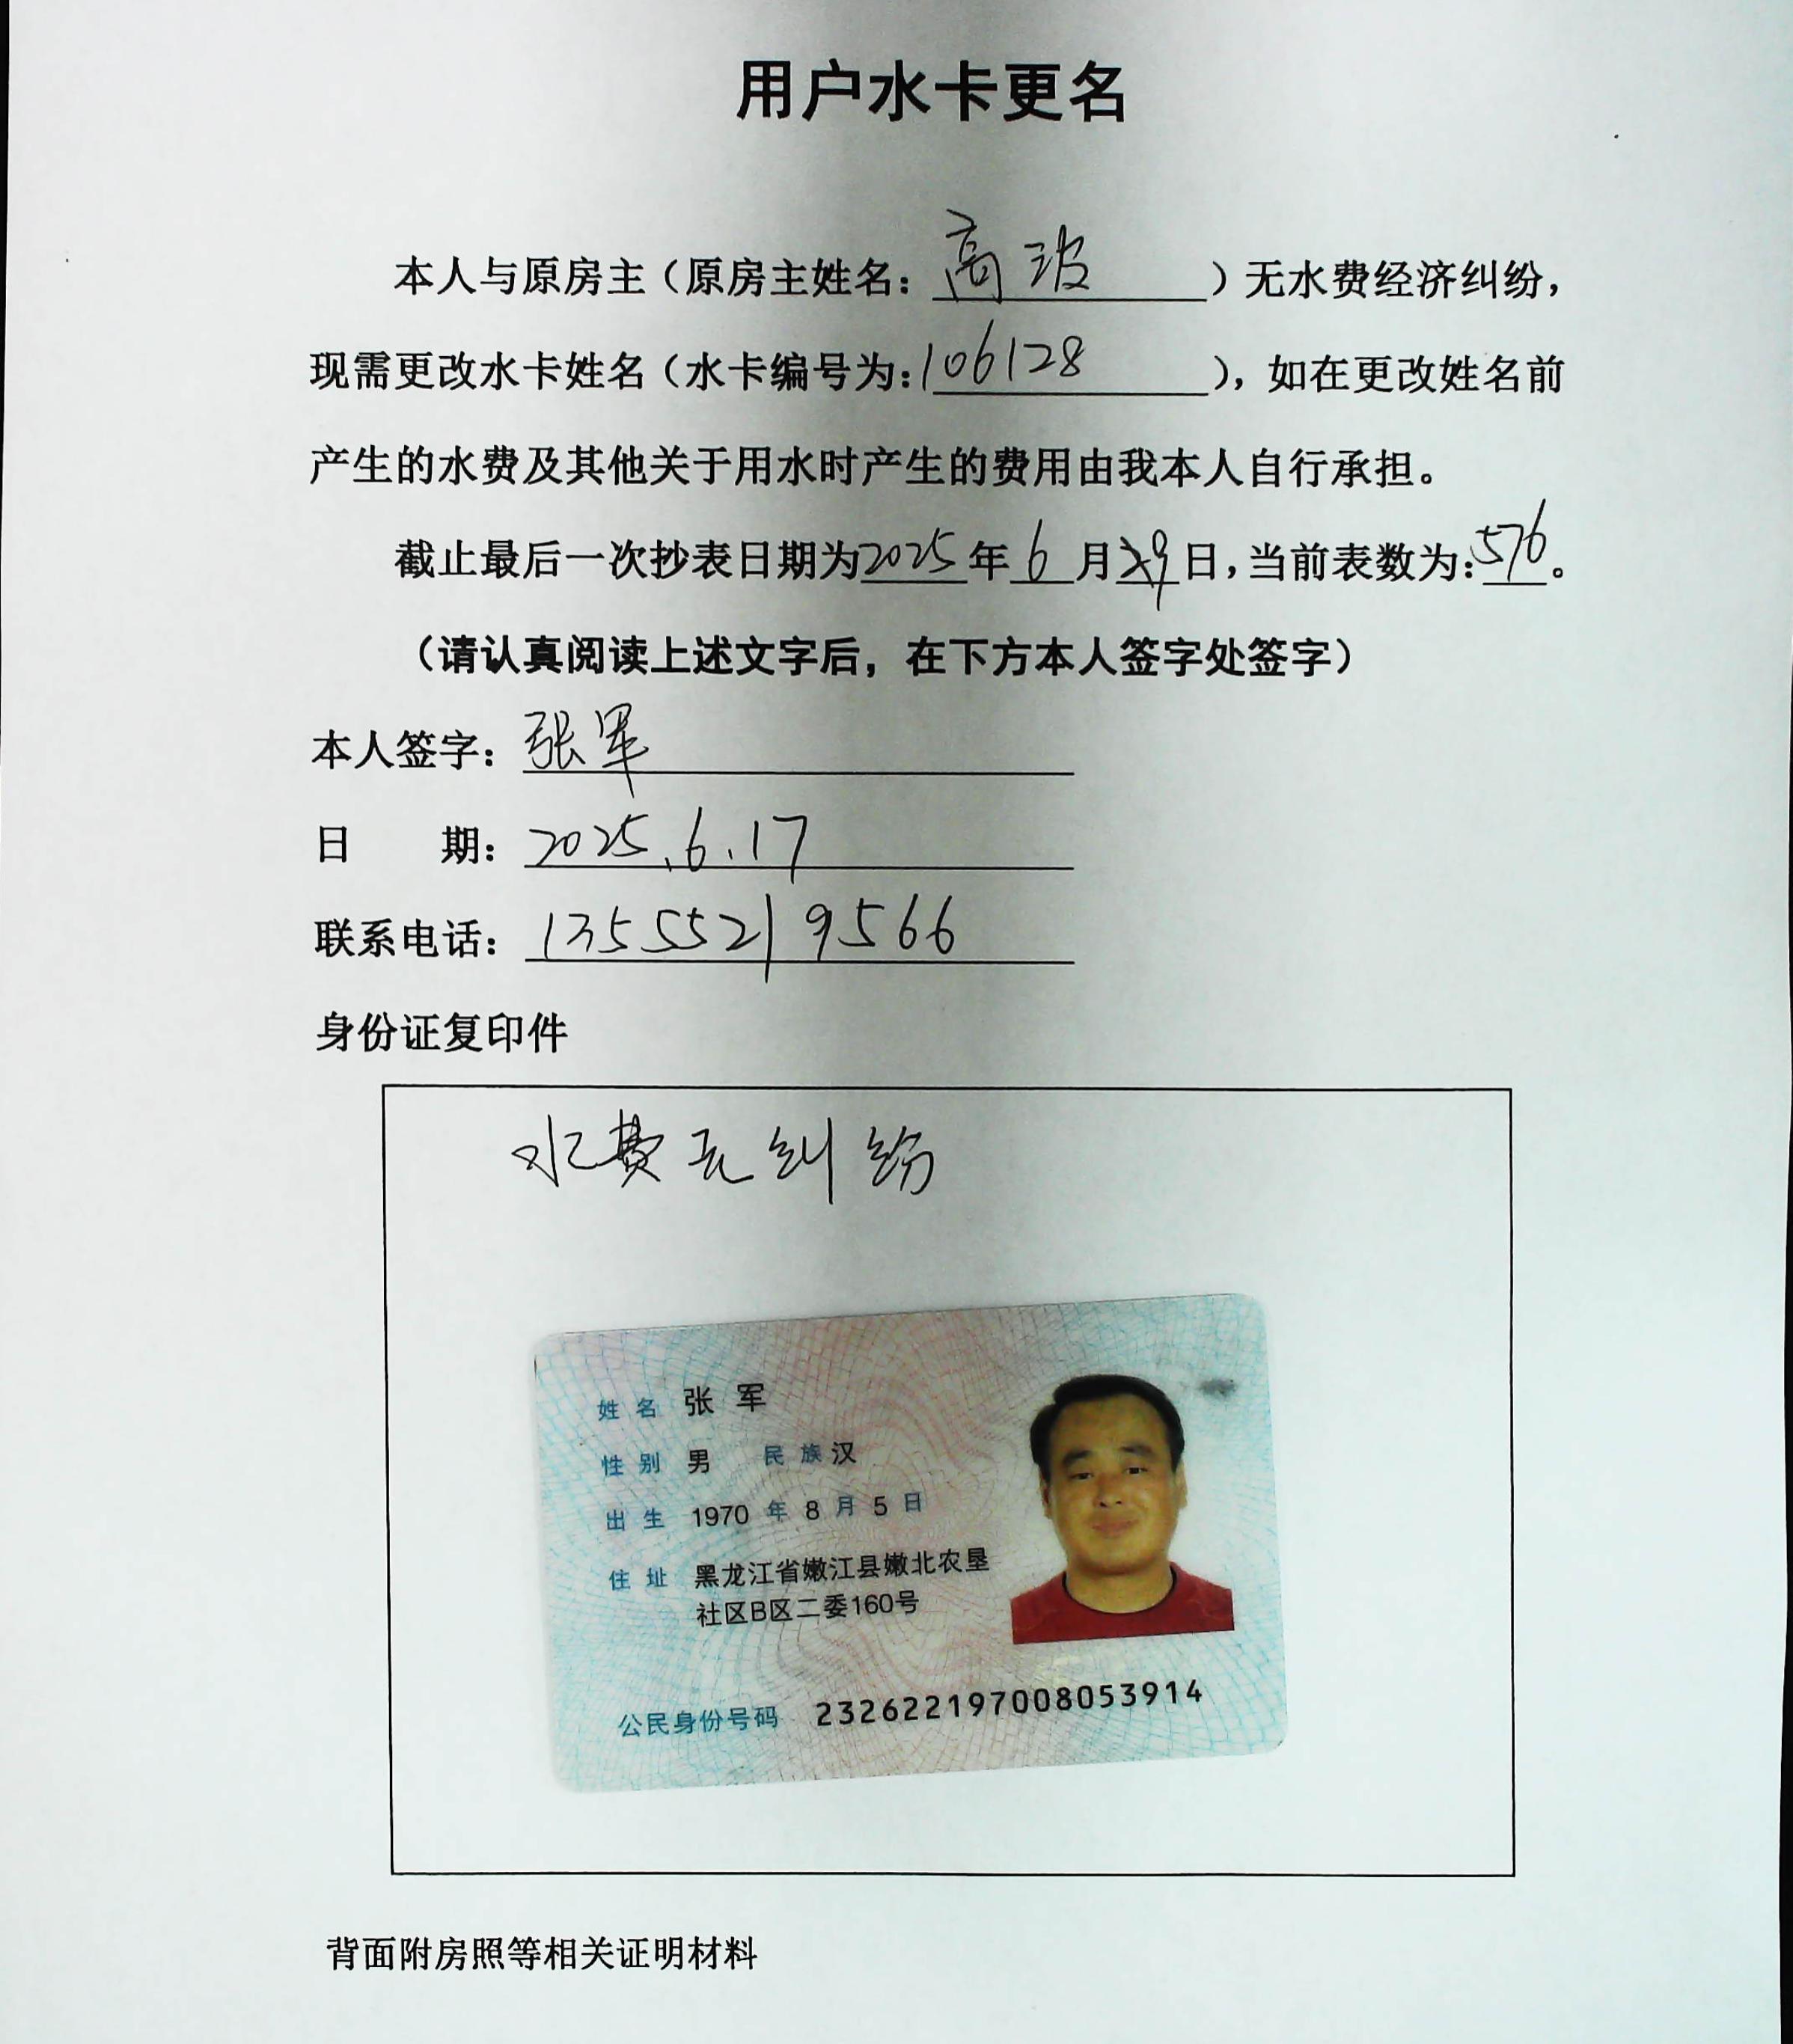 用户水卡更名
本人与原房主（原房主姓名：高波）无水费经济纠纷，
现需更改水卡姓名（水卡编号为：106128），如在更改姓名前
产生的水费及其他关于用水时产生的费用由我本人自行承担。
截止最后一次抄表日期为2025年6月29日，当前表数为：576。
（请认真阅读上述文字后，在下方本人签字处签字）
本人签字：张军
日 期：2025.6.17
联系电话：13555219566
身份证复印件
水费无纠纷
姓名 张军
性别 男 民族 汉
出生 1970年8月5日
住址 黑龙江省嫩江县嫩北农垦
社区B区二委160号
公民身份号码 232622197008053914
背面附房照等相关证明材料